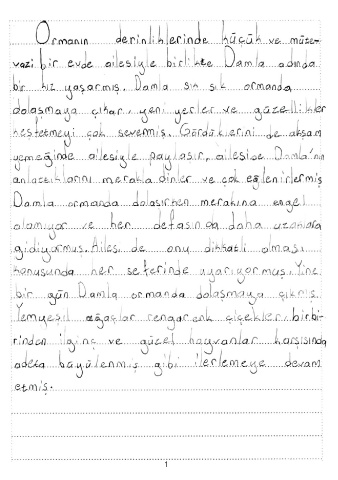 Ormanın derinliklerinde küçük ve müte-
vazi bir evde ailesiyle birlikte Damla adında
bir kız yaşarmış. Damla sık sık ormanda
dolaşmaya çıkar, yeni yerler ve güzellikler
keşfetmeyi çok severmiş. Gördüklerini de akşam
yemeğinde ailesiyle paylaşır, ailesi de Damla'nın
anlattıklarını merakla dinler ve çok eğlenirlermiş
Damla ormanda dolaşırken merakına engel
olamıyor ve her defasında daha uzaklara
gidiyormuş. Ailesi de onu dikkatli olması
konusunda her seferinde uyarıyormuş. Yine
bir gün Damla ormanda dolaşmaya çıkmış.
Yemyeşil ağaçlar rengarenk çiçekler, birbi-
rinden ilginç ve güzel hayvanlar karşısında
adeta büyülenmiş gibi ilerlemeye devam
etmiş.
1